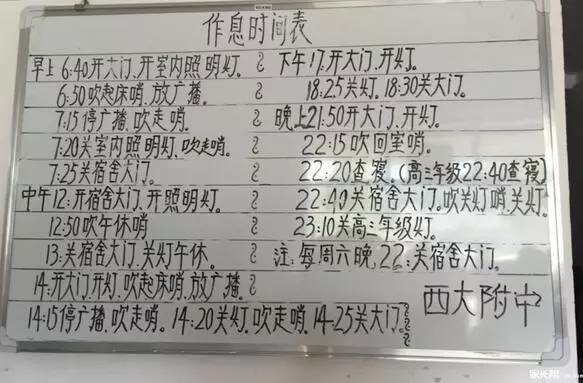 作息时间表
早上6:40开大门、开室内照明灯。
6:50吹起床哨、放广播。
7:15停广播、吹走哨。
7:20关室内照明灯、吹走哨。
7:25关宿舍大门。
中午12:开宿舍大门、开照明灯。
12:50吹午休哨
13:关宿舍大门、关灯午休。
14:开大门、开灯、吹起床哨、放广播。
14:15停广播、吹走哨。14:20关灯、吹走哨、14:25关大门。
下午17:开大门、开灯。
18:25关灯、18:30关大门。
晚上21:50开大门、开灯。
22:15吹回室哨。
22:20查寝。(高三年级22:40查寝)
22:40关宿舍大门、吹关灯哨、关灯。
23:10关高三年级灯。
注:每周六晚22:关宿舍大门。
西大附中